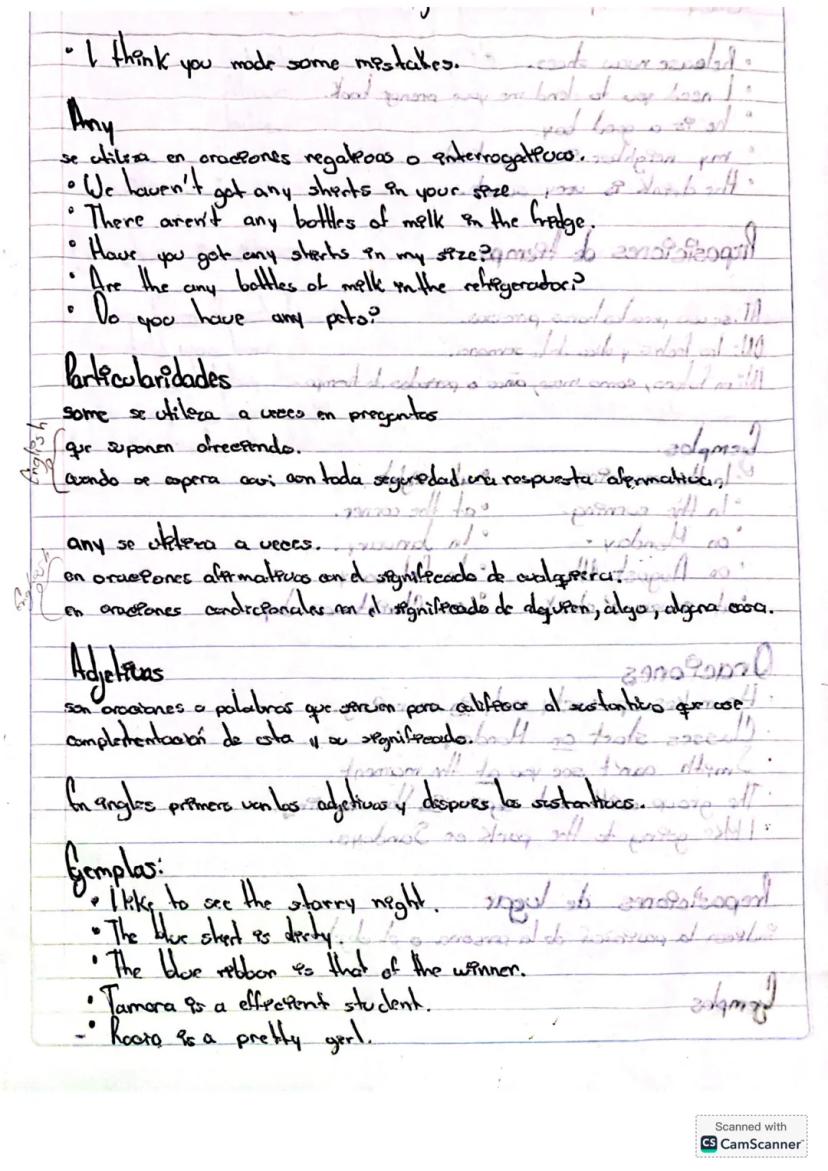 • I think you made some mistakes.
Any
se utiliza en oraciones negativas o interrogativas.
• We haven't got any shirts in your size
• There aren't any bottles of milk in the fridge.
• Have you got any shirts in my size?
• Are the any bottles of milk in the refrigerador?
• Do you have any pets?
Particularidades
some se utiliza a veces en preguntas
English
que suponen ofreciendo.
cuando se espera casi con toda seguridad una respuesta afirmativa.
any se utiliza a veces.
English
en oraciones afirmativas con el significado de cualquiera.
en oraciones condicionales con el significado de alguien, algo, alguna cosa.
Adjetivos
son oraciones o palabras que sirven para calificar al sustantivo que
complementación de esta y su significado.
En ingles primero van los adjetivos y despues los sustantivos.
Ejemplos:
• I like to see the starry night.
• The blue shirt is dirty.
• The blue ribbon is that of the winner.
• Tamara is a efficient student.
• Rocio is a pretty girl.
Scanned with
CS CamScanner